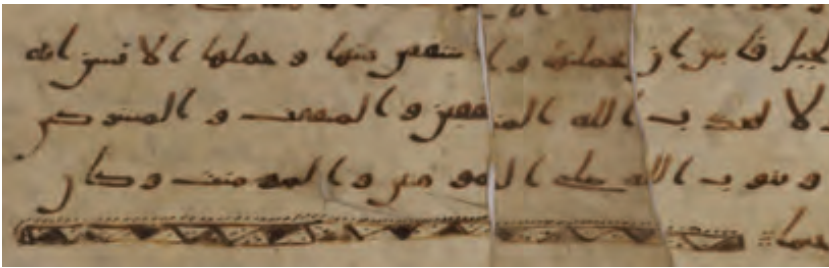 لجبل فابين ان يحملنها و اشفقن منها و حملها الانسن انه
لا ليعذب الله المنفقين و المنفقت و المشركين
و يتوب الله على المومنين و المومنت و كان
حيما